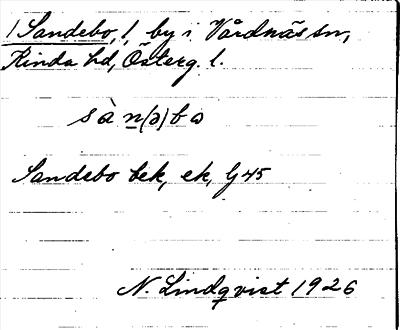 /Sandebo,/ by i Vårdnäs sn,
Kinda hd, Österg. l.
sà n(ə)bω
Sandebo bek, ek, G 45
N. Lindqvist 1926